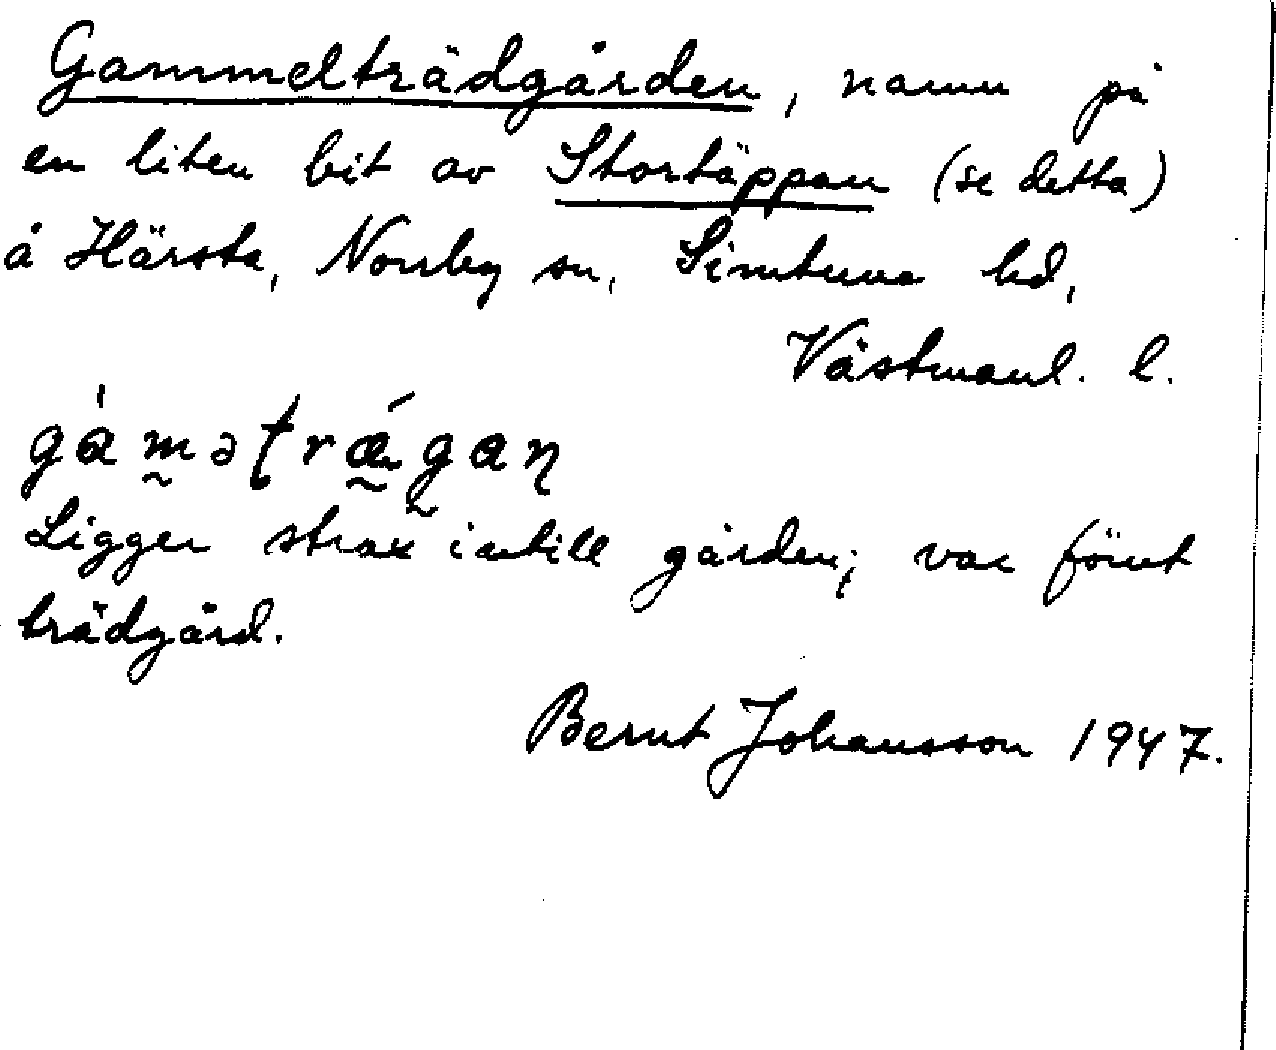 Gammelträdgården, namn på
en liten bit av Stortäppan (se detta)
å Härsta, Norrby sn, Simtuna hd,
Västmanl. l.
gàmətrǽgaɳ
Ligger strax intill gården; var förut
trädgård.
Bernt Johansson 1947.